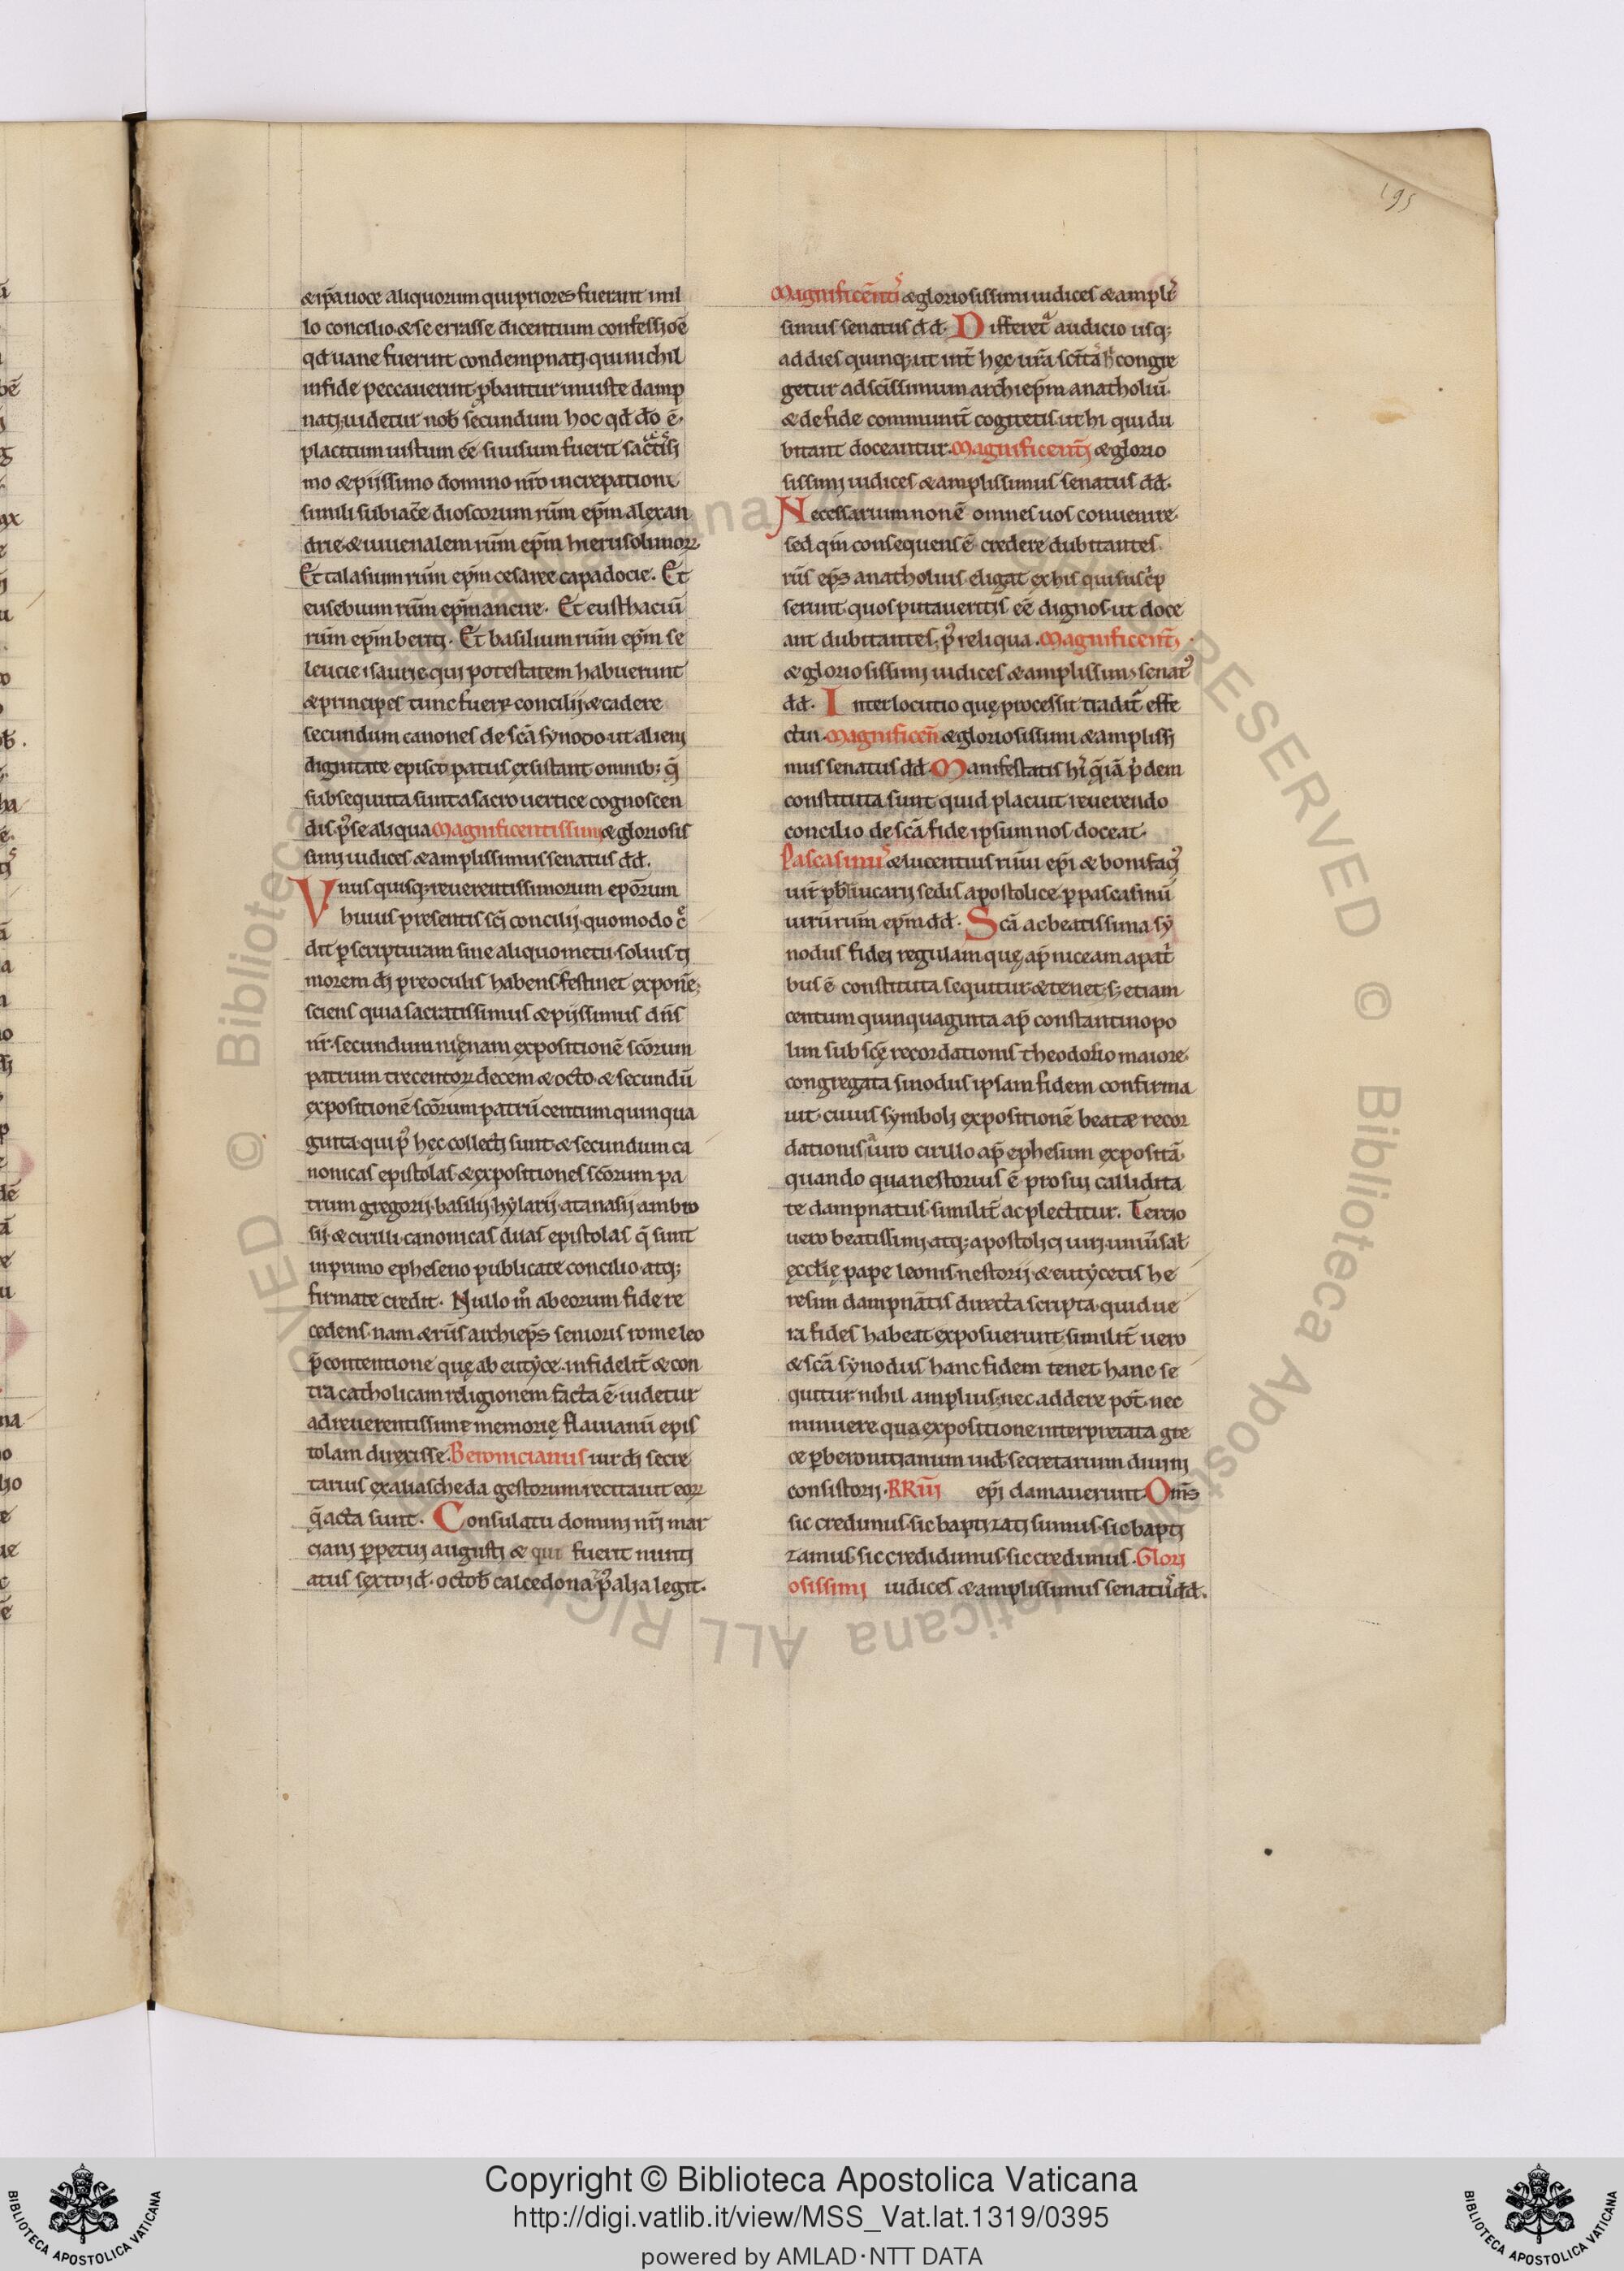 195
&ip̄a uoce aliquorum qui priores fuerant in il
lo concilio & se errasse dicentium confessiōē
qd̄ uane fuerint condempnati qui nichil
in fide peccauerunt ꝓbantur iniuste damp
nati uidetur nob̄ secundum hoc qd̄ dō ē.
placitum iustum eē si uisum fuerit
mo & piissimo domino nr̄o increpatione
simili subiacē dioscorum rūm ep̄m alexan
drie & iuuenalem rūm ep̄m hierusolimoꝝ.
Et talasium rūm ep̄m cesaree capadocie. Et
eusebium rūm ep̄m ancire. Et eusthaciū
rūm ep̄m beriti. Et basilium rūm ep̄m se
leucie isaurie qui potestatem habuerunt
& principes tunc fuerꝝ concilij & cadere
secundum canones de sc̄a synodo ut alieni
dignitate episcopatus existant omnib; q̄
subsequuta sunt a sacro uertice cognoscen
dis. se aliqua Magnificentissimi & gloriosis
simi iudices & amplissimus senatus dd̄.
Vnus quisq; reuerentissimorum epōrum
huius presentis sc̄i concilij quomodo c̄
dit ꝑ scripturam sine aliquo metu solius ti
morem dī pre oculis habens festinet exponē;
sciens quia sacratissimus & piissimus dn̄s
nr̄ secundum niçenam expositionē scōrum
patrum trecentoꝝ decem & octo & secundū
expositionē scōrum patrū centum quinqua
ginta qui hec collecti sunt & secundum ca
nonicas epistolas & expositiones scōrum pa
trum gregorij basilij hẏlarij atanasij ambro
sij & cirilli canonicas duas epistolas q̄ sunt
in primo epheseno publicate concilio atq;
firmate credit. Nullo m̊ ab eorum fide re
cedens nam & rūs archiep̄s senioris rome leo
ꝓ contentione quę ab eutẏce infidelit̄ & con
tra catholicam religionem facta ē uidetur
ad reuerentissimę memorię flauianū epis
tolam direxisse. Beronicianus uir dī secre
tarius ex alia scheda gestorum recitauit eoꝝ
q̄ acta sunt. Consulatu domini nr̄i mar
ciani ꝑpetui augusti & qui fuerit nunti
atus sexto id̄. octob̄ calcedona alia legit.
Magnificēnti & gloriosissimi iudices & ampli
simus senatus dd̄. Differet̄ audicio usq;
ad dies quinq; ut int̄ hęc ur̄a congre
getur ad sc̄issimum archiep̄m anatholiū.
& de fide communit̄ cogitetis ut hi qui du
bitant doceantur. Magnificenti & glorio
sissimi iudices & amplissimus senatus dd̄.
Necessarium non ē omnes uos conuenire
sed qm̄ consequens ē credere dubitantes
rūs ep̄s anatholius eligat ex his qui
serunt quos putaueritis eē dignos ut doce
ant dubitantes reliqua. Magnificent̄
& gloriosissimi iudices & amplissimus senat᾽
dd̄. Interlocutio quę processit tradit̄ effe
ctui. Magnificen̄ & gloriosissimi & amplissi
mus senatus dd̄. Manifestatis hī q̄ iā pridem
constituta sunt quid placuit reuerendo
concilio de sc̄a fide ipsum nos doceat.
Pascasinus & lucentius rūm ep̄i & bonifaci᾽
uir pb̄ uicarij sedis apostolice ꝑ pascasinū
uirū rūm ep̄m dd̄. Sc̄a ac beatissima sẏ
nodus fidei regulam quę ap̄ niceam a pat
bus ē constituta sequitur & tenet s; etiam
centum quinquaginta ap̄ constantinopo
lim sub sc̄ę recordationis theodosio maiore
congregata sinodus ipsam fidem confirma
uit cuius symboli expositionē beatæ recor
dationis a uiro cirillo ap̄ ephesum expositā
quando qua nestorius ē pro sui callidita
te dampnatus similit̄ ac plectitur. Tercio
uero beatissimi atq; apostolici uiri uniūsal
ęccl̄ię pape leonis nestorij & eutẏcetis he
resim dampnātis directa scripta quid ue
ra fides habeat exposuerunt similit̄ uero
& sc̄a sẏnodus hanc fidem tenet hanc se
quitur nihil amplius nec addere pot̄ nec
minuere qua expositione interpretata gre
ce ꝑ beronitianum uid̄ secretarium diuini
consistorij. RRūi ep̄i clamauerunt Om̄s
sic credimus sic baptizati sumus sic bapti
zamus sic credidimus sic credimus. Glori
osissimi iudices & amplissimus senatus dd̄.
Copyright © Biblioteca Apostolica Vaticana
http://digi.vatlib.it/view/MSS_Vat.lat.1319/0395
powered by AMLAD·NTT DATA
BIBLIOTECA APOSTOLICA VATICANA
BIBLIOTECA APOSTOLICA VATICANA
© Biblioteca Apostolica Vaticana ALL RIGHTS RESERVED © Biblioteca Apostolica Vaticana ALL RIGHTS RESERVED